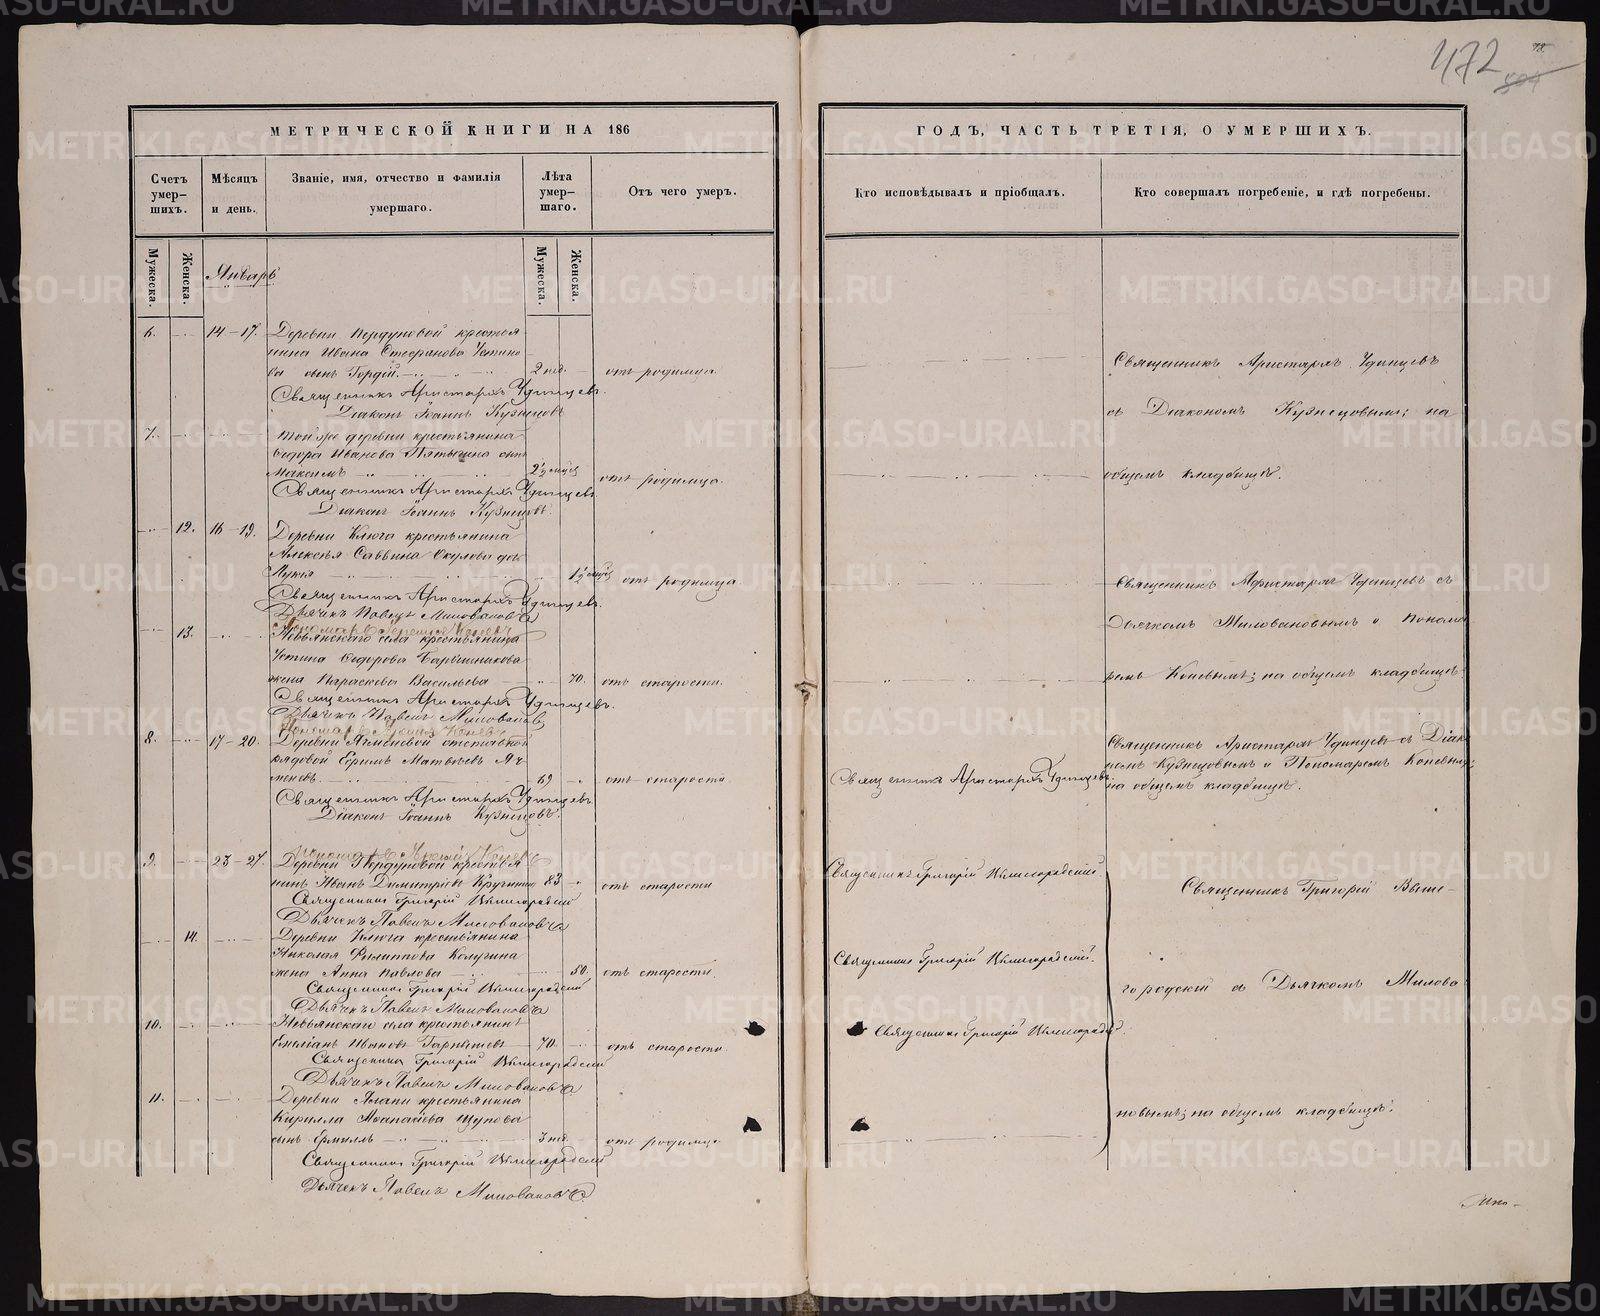 472
МЕТРИЧЕСКОЙ КНИГИ НА 186
ГОДЪ, ЧАСТЬ ТРЕТІЯ, О УМЕРШИХЪ.
Счетъ умер-шихъ.
Мѣсяцъ и день.
Званіе, имя, отчество и фамилія умершаго.
Лѣта умер-шаго.
Отъ чего умеръ.
Кто исповѣдывалъ и пріобщалъ.
Кто совершалъ погребеніе, и гдѣ погребены.
Мужеска.
Женска.
Январь
Мужеска.
Женска.
6. 14-17. Деревни крестья
нина Ивана Стефанова Устино
ва сынъ Гордій. 2 нед. отъ родимца.
Священникъ Аристархъ Удинцевъ.
Діаконъ Іоаннъ Кузнецовъ
Священникъ Аристархъ Удинцевъ
съ Діакономъ Кузнецовымъ; на
общемъ кладбищѣ.
7. Той же деревни крестьянина
Ѳедора Иванова сынъ
Максимъ 2½ отъ родимца.
Священникъ Аристархъ Удинцевъ.
Діаконъ Іоаннъ Кузнецовъ.
12. 16-19. Деревни Ключа крестьянина
Алексѣя Саввина Окулова дочь
1½ отъ родимца.
Священникъ Аристархъ Удинцевъ.
Дьячекъ Павелъ Миловановъ
Священникъ Аристархъ Удинцевъ съ
Дьячкомъ Миловановымъ и Понома
ремъ Коневымъ; на общемъ кладбищѣ
13. Невьянскаго села крестьянина
Устина Ѳедорова Барышникова
жена Параскева Васильева 70. отъ старости.
Священникъ Аристархъ Удинцевъ.
Дьячекъ Павелъ Миловановъ
8. 17-20. Деревни Ячменевой отставной
рядовой Ефимъ Матвѣевъ Яч
меневъ. 69 отъ старости.
Священникъ Аристархъ Удинцевъ.
Діаконъ Іоаннъ Кузнецовъ.
Священникъ Аристархъ Удинцевъ.
Священникъ Аристархъ Удинцевъ съ Діако
номъ Кузнецовымъ и Пономаремъ Коневымъ;
на общемъ кладбищѣ.
9. 23-27. Деревни крестья
нинъ Иванъ Димитріевъ 83 отъ старости
Священникъ Григорій Вышегородскій
Дьячекъ Павелъ Миловановъ
Священникъ Григорій Вышегородскій
Священникъ Григорій Выше-
городскій съ Дьячкомъ Милова
новымъ; на общемъ кладбищѣ.
14. Деревни Ключа крестьянина
Николая Филиппова
жена Анна Павлова 50. отъ старости.
Священникъ Григорій Вышегородскій
Дьячекъ Павелъ Миловановъ
Священникъ Григорій Вышегородскій.
10. Невьянскаго села крестьянинъ
Емеліанъ Ивановъ 70. отъ старости
Священникъ Григорій Вышегородскій
Дьячекъ Павелъ Миловановъ
Священникъ Григорій Вышегородскій
11. Деревни крестьянина
Кирилла сынъ Ермилъ 3 нед. отъ родимца
Священникъ Григорій Вышегородскій
Дьячекъ Павелъ Миловановъ.
METRIKI.GASO-URAL.RU